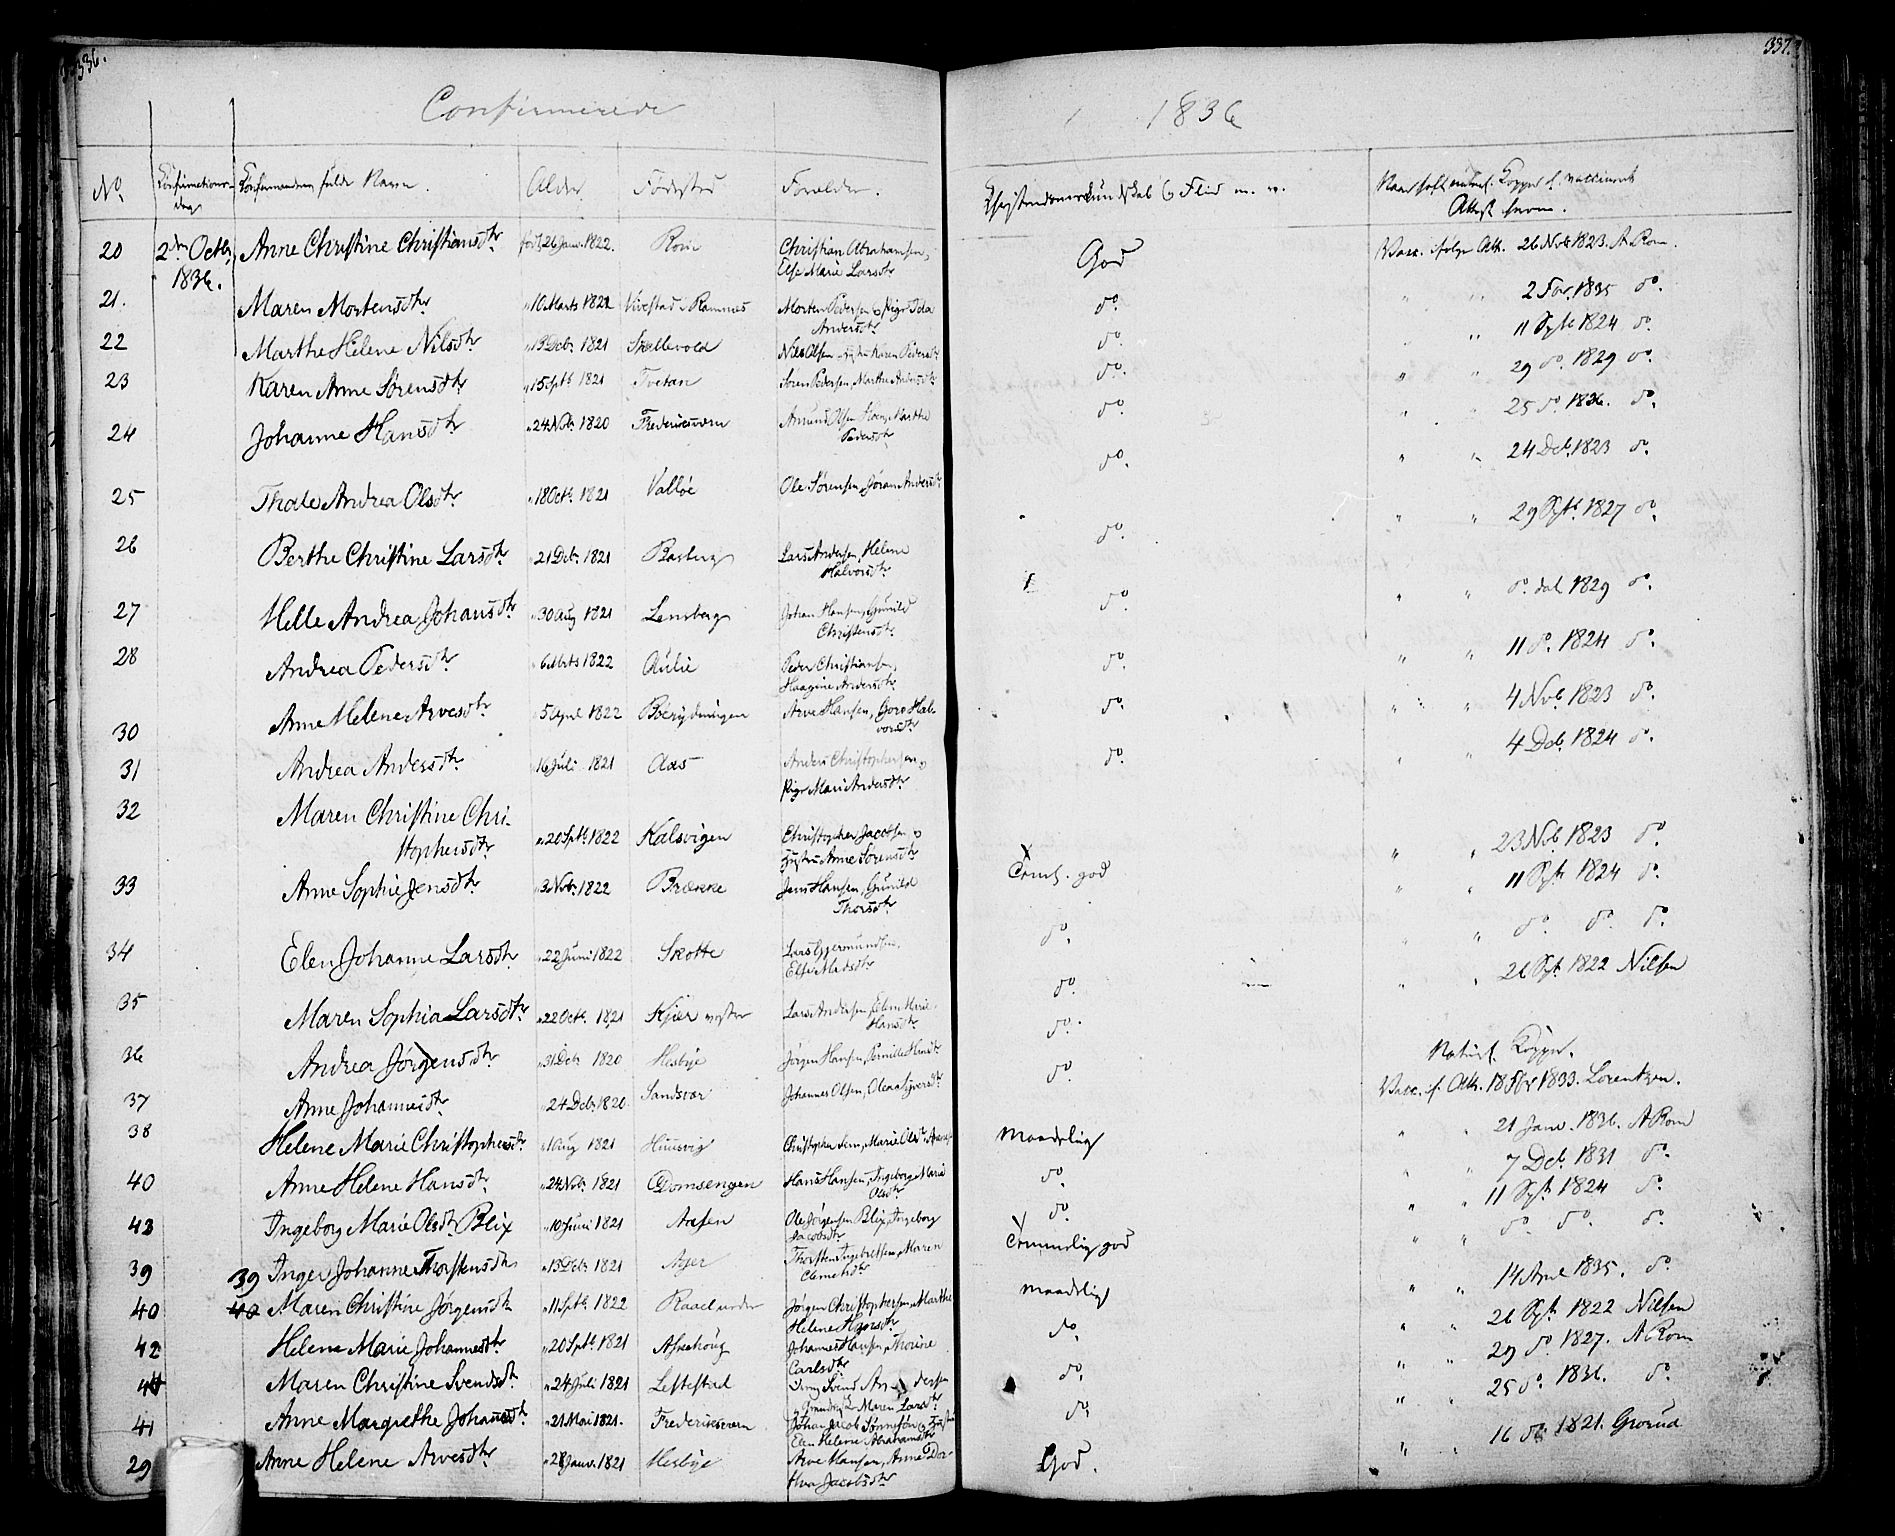 336.
Confirmerede
No. Confirmations-dag Confirmandens fulde Navn. Alder Fødested Forældre.
20 2den Octbr 1836. Anne Christine Christiansdtr født 26 Janv. 1822. Rom Christian Abrahamsen, Else Marie Larsdtr
21. Maren Mortensdtr " 10 Marts 1822 Vivestad i Ramnes Morten Pedersen & Pige Ida Andersdtr
22 Marthe Helene Nilsdtr " 13 Decbr 1821 Skallevold Nils Olsen Karen Pedersdtr
23 Karen Anne Sørensdtr " 15 Sptb 1821 Tvetan Søren Pedersen, Marthe Andersdtr
24 Johanne Hansdtr " 24 Nvb. 1820 Frederiksværn Marthe Pedersdtr
25 Thale Andrea Olsdtr " 18 Octb. 1821 Valløe Ole Sørensen, Jøran Andersdtr
26 Berthe Christine Larsdtr " 21 Decb. 1821 Basberg Lars Andersen, Helene Halvorsdtr
27 Helle Andrea Johansdtr " 30 Aug 1821 Lensberg Johan Hansen, Gunild Christensdtr
28 Andrea Pedersdtr " 6 Marts 1822 Aulie Peder Christiansen, Haagine Andersdtr
Anne Helene Arvesdtr " 5 April 1822 Børrydningen Arve Hansen, Goro Halvorsdtr
30
31 Andrea Andersdtr " 16 Juli 1821 Aas Anders Christophersen & Pige Mari Andersdtr
32 Maren Christine Christophersdtr " 20 Sptb 1822 Kalsvigen Christopher Jacobsen & Hustru Anne Sørensdtr
33 Anne Sophie Jensdtr " 3 Nvb. 1822 Brække Jens Hansen, Gunild Thorsdtr
34 Elen Johanne Larsdtr " 22 Juni 1822 Skotte Lars Gjermundsen, Else Madsdtr
35 Maren Sophia Larsdtr " 22 Octb. 1821 Kjær vestre Lars Andersen, Elen Marie Hansdtr
36 Andrea Jørgensdtr " 31 Decb 1820 Hesbye Jørgen Hansen, Pernille Hansdtr
37 Anne Johannesdtr " 24 Decb. 1820 Sandsvær Johannes Olsen, Olea Syversdtr
38 Helene Marie Christophersdtr " 1 Aug 1821 Huusvig Marie Olsdtr
40 Anne Helene Hansdtr " 24 Nvb. 1821 Domsengen Hans Hansen, Ingeborg Marie Olsdtr
43 Ingeborg Marie Olsdtr Blix " 10 Juni 1821 Aasen Ole Jørgensen Blix, Ingeborg Jacobsdtr
39 Inger Johanne Thorstensdtr " 13 Decb 1821 Ager Thorsten Ingebretsen, Maren Clemetsdtr
40 39 Maren Christine Jørgensdtr " 11 Sptb. 1822 Raael nedre Jørgen Christophersen, Marthe Helene
42 Helene Marie Johannesdtr " 20 Sptb. 1821 Askehoug Johannes Hansen, Thorine Carlsdtr
44 Maren Christine Svendsdtr " 24 Juli 1821 Leftestad Svend Andersen Maren Larsdtr
41 Anne Margrethe Johansdtr " 21 Mai 1821. Frederiksværn Johan Jacob Elen Helene Abrahamsdtr
29 Anne Helene Arvesdtr " 28 Janv. 1821 Hesbye Arve Hansen, Anne Dorthea Jacobsdtr
337.
1836
Christendomskundskab & Flid m. v. Naar havt naturl. Kopper el. vaccineret Attest herom.
God Vacc. ifølge Att. 26 Nvb 1823. A Rom.
do. " " 2 Febr. 1835 do.
do. " " 11 Sptb 1824 do.
do. " " 29 do. 1829 do.
do. " " 25 do. 1836. do.
do. " " 24 Decb. 1823 do.
do. " " 29 Sptb. 1827 do.
do. " " do. dat 1829 do.
do. " " 11 do. 1824 do.
do. " " 4 Nvb. 1823 do.
do. " " 4 Decb. 1824 do.
" " 23 Nvb 1823 do
Temml. god " " 11 Sptb 1824 do.
do. " " do. do. do.
do. " " 26 Spt. 1822 Nilsen
do.
Naturl. Kopper.
do. Vacc. if. Att. 18 Febr 1833. Lorentzen.
Maadelig " " 21 Janv. 1836. A Rom
do. " " 7 Decb. 1831 do.
do. " " 11 Sptb. 1824 do.
Temmelig god " " do. do. do.
maadelig " " 14 April 1835. do.
do. " " 26 Spt. 1822 Nilsen
do. " " 29 do 1827. A Rom
do. " " 25 do. 1836. do.
God. " " 16 do. 1821. Grorud